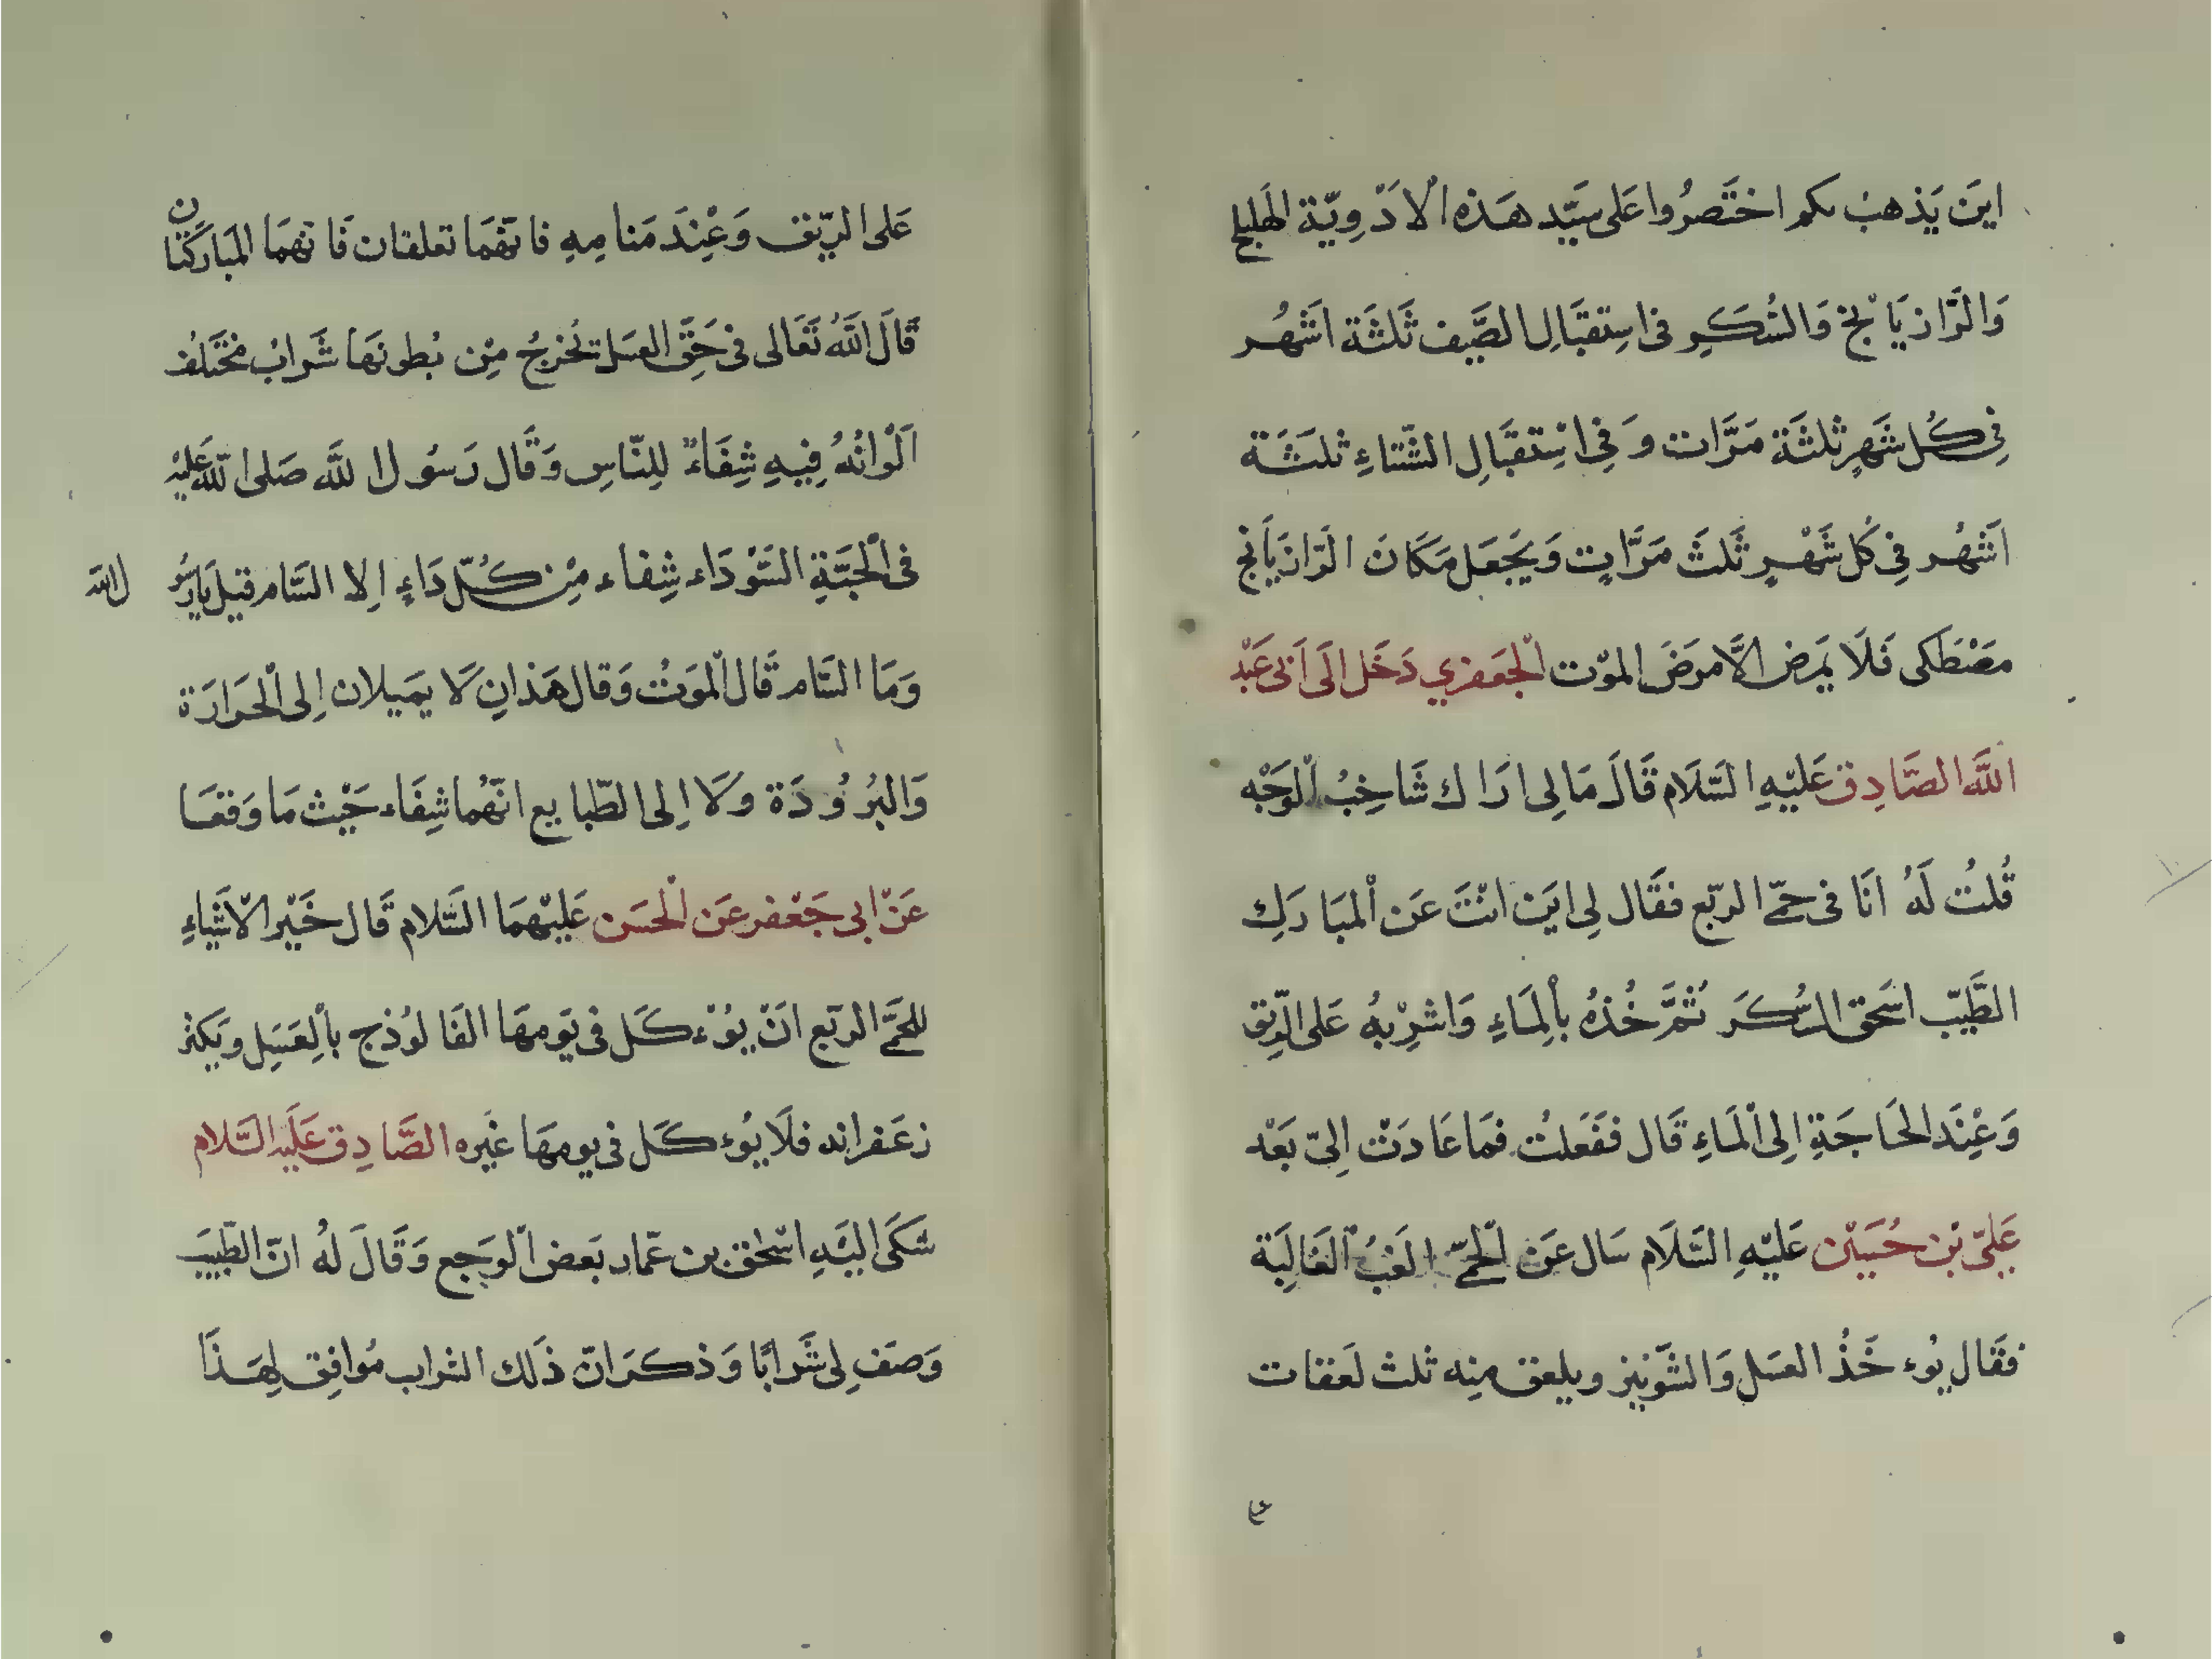 اينَ يَذهبُ بكم اختَصرُوا عَلى سَيّد هَذه الْادَوِيّة الهَليلج
وَالرَّازيَا بْخ وَالسُكَرِ فى اسِتقبَالِ الصَّيف ثَلثَة اَشهُر
فِى كُل شَهرٍ ثلثَة مَرَّات وَ فِى اسْتقبَالِ الشّتاءِ ثلثَة
اَشهُر فِى كُل شَهْرٍ ثَلثَ مَرَّاتٍ وَيَجعَل مَكانَ الرّازيَانج
مصْطَكى فَلَا يمَرض الَّا مرَضَ الموْت الْجعَفري دَخَل الَى اَبى عَبْد
اللَّه الصَّادِق عَليّهِ السَّلَام قَالَ مَالِى ارَاك شَاخِبُ الْوَجْه
قُلتُ لَهُ انَا فى حمّى الربّع فقَال لِى ايَن انْتَ عَن الْمبَارَكِ
الطَّيّب اسَحق السُكرَ ثُمَّ خُذهُ بالْمَاءِ وَاشرِبْهُ عَلى الرّيق
وَعْنِدَ الحَاجَةِ اِلى الْمَاءِ قَال ففَعَلتُ فمَا عَادَتْ اِلىّ بَعْد
عَلىّ بْن حُسَيْن عَليْهِ السَّلَام سَال عَن الْحمّى الغَبُ الْغَالِبَة
فقَال يُوء خَذُ العسَل وَالشَّوْنِيز ويلعق مِنه ثلث لَعقات
عَلى الرّيق وَعْنِدَ مَنامِهِ فانّهمَا تعلقان فَانهمَا المبَاركَتان
قَالَ اللّهُ تَعَالى فى حَقِّ العسَل تخرجُ مِن بُطونهَا شَرابُ مختَلفُ
اَلْوانُهُ فِيهِ شِفَاءٌ لِلنّاسِ وَقَال رَسُول اللَّه صَلى اللّه عَليْه
فى الْحَبَّةِ السَّوْدَاء شِفاء مِن كُلّ دَاءٍ اِلا السَّام قيل يَارَسُو ل الله
وَمَا السَّام قَال الْموَتُ وَقال هَذانِ لَا يمَيلان اِلى الْحَرارَة
وَالبُرُوُدَة وَلَا اِلى الطّبايع انّهُما شِفَاء حَيْث مَا وَقعَا
عَنْ ابى جَعْفر عَن الْحسَن عَليْهمَا السَّلام قَال خَيْر الْاشَياءِ
للحمَّى الربّع انْ يوُء كَل فى يَومهَا الفَالوُذج بالْعَسَلِ وَيكثر
زعَفرانه فلَا يوُء كَل فى يومهَا غَيره الصَّادِق عَليَه السَّلام
شكَى اليَهِ اسْحٰق بن عمّار بَعض الْوَجع وَقَالَ لهُ انّ الطَّبيبَ
وَصَف لِى شَرابًا وَذكرَ انّ ذَلك الشراب مُوافِق لِهَذَا